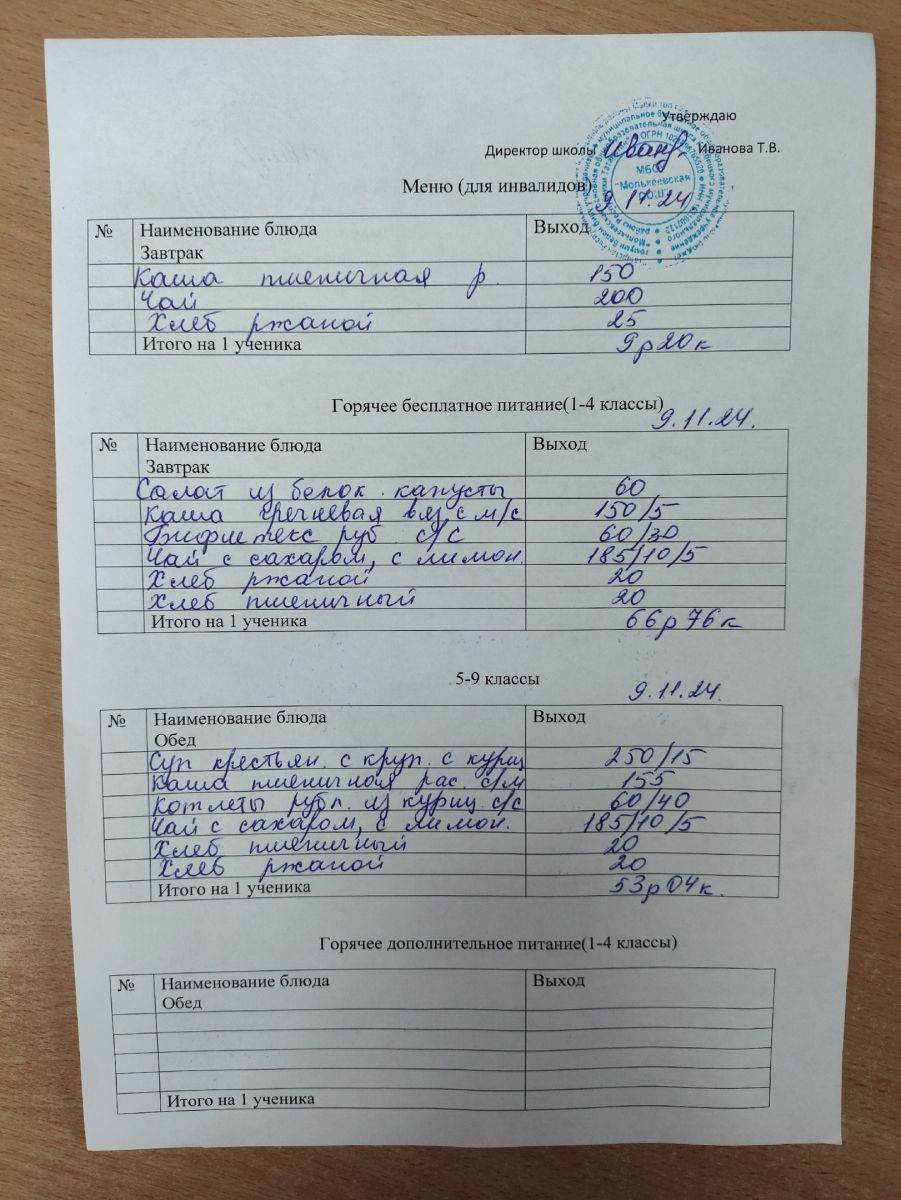 Утверждаю
Директор школы Иванова Т.В.
МБОУ
"Молькеевская
ООШ"
Меню (для инвалидов)
9.11.24
№ Наименование блюда Выход
Завтрак
Каша пшеничная р. 150
Чай 200
Хлеб ржаной 25
Итого на 1 ученика 9р20к
Горячее бесплатное питание(1-4 классы)
9.11.24.
№ Наименование блюда Выход
Завтрак
Салат из белок. капусты 60
Каша гречневая вяз с м/с 150/5
Бифштекс руб с/с 60/30
Чай с сахаром, с лимон. 185/10/5
Хлеб ржаной 20
Хлеб пшеничный 20
Итого на 1 ученика 66р76к
5-9 классы
9.11.24.
№ Наименование блюда Выход
Обед
Суп крестьян. с круп. с куриц 250/15
Каша пшеничная рас. с/м 155
Котлеты рубл. из куриц. с/с 60/40
Чай с сахаром, с лимон. 185/10/5
Хлеб пшеничный 20
Хлеб ржаной 20
Итого на 1 ученика 53р04к.
Горячее дополнительное питание(1-4 классы)
№ Наименование блюда Выход
Обед
Итого на 1 ученика